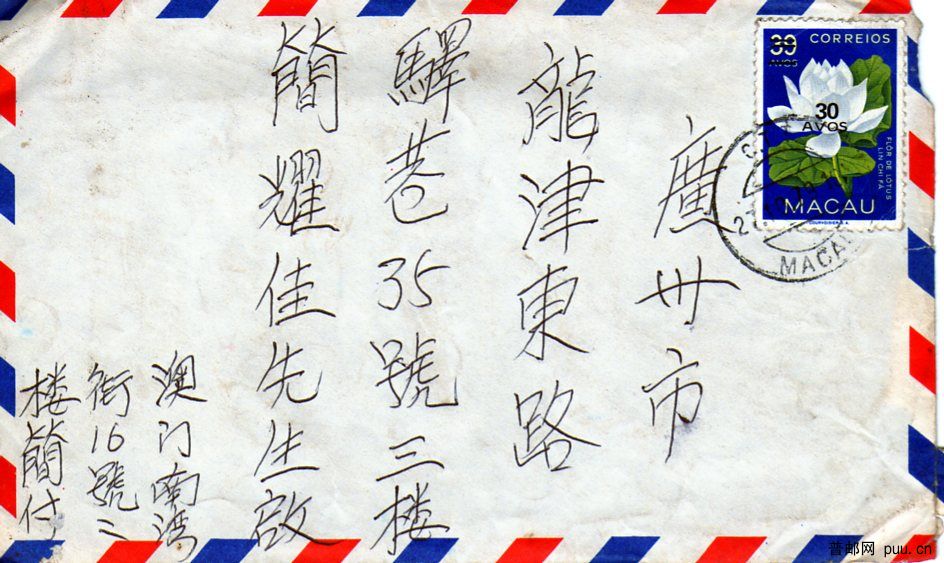 廣州市
龍津東路
驛巷35號三楼
簡耀佳先生啟
澳门南湾
街16號二
楼簡付
39
AVOS
CORREIOS
30
AVOS
FLÔR DE LÓTUS
LIN CHI FÁ
MACAU
MACAU
普邮网 puu.cn